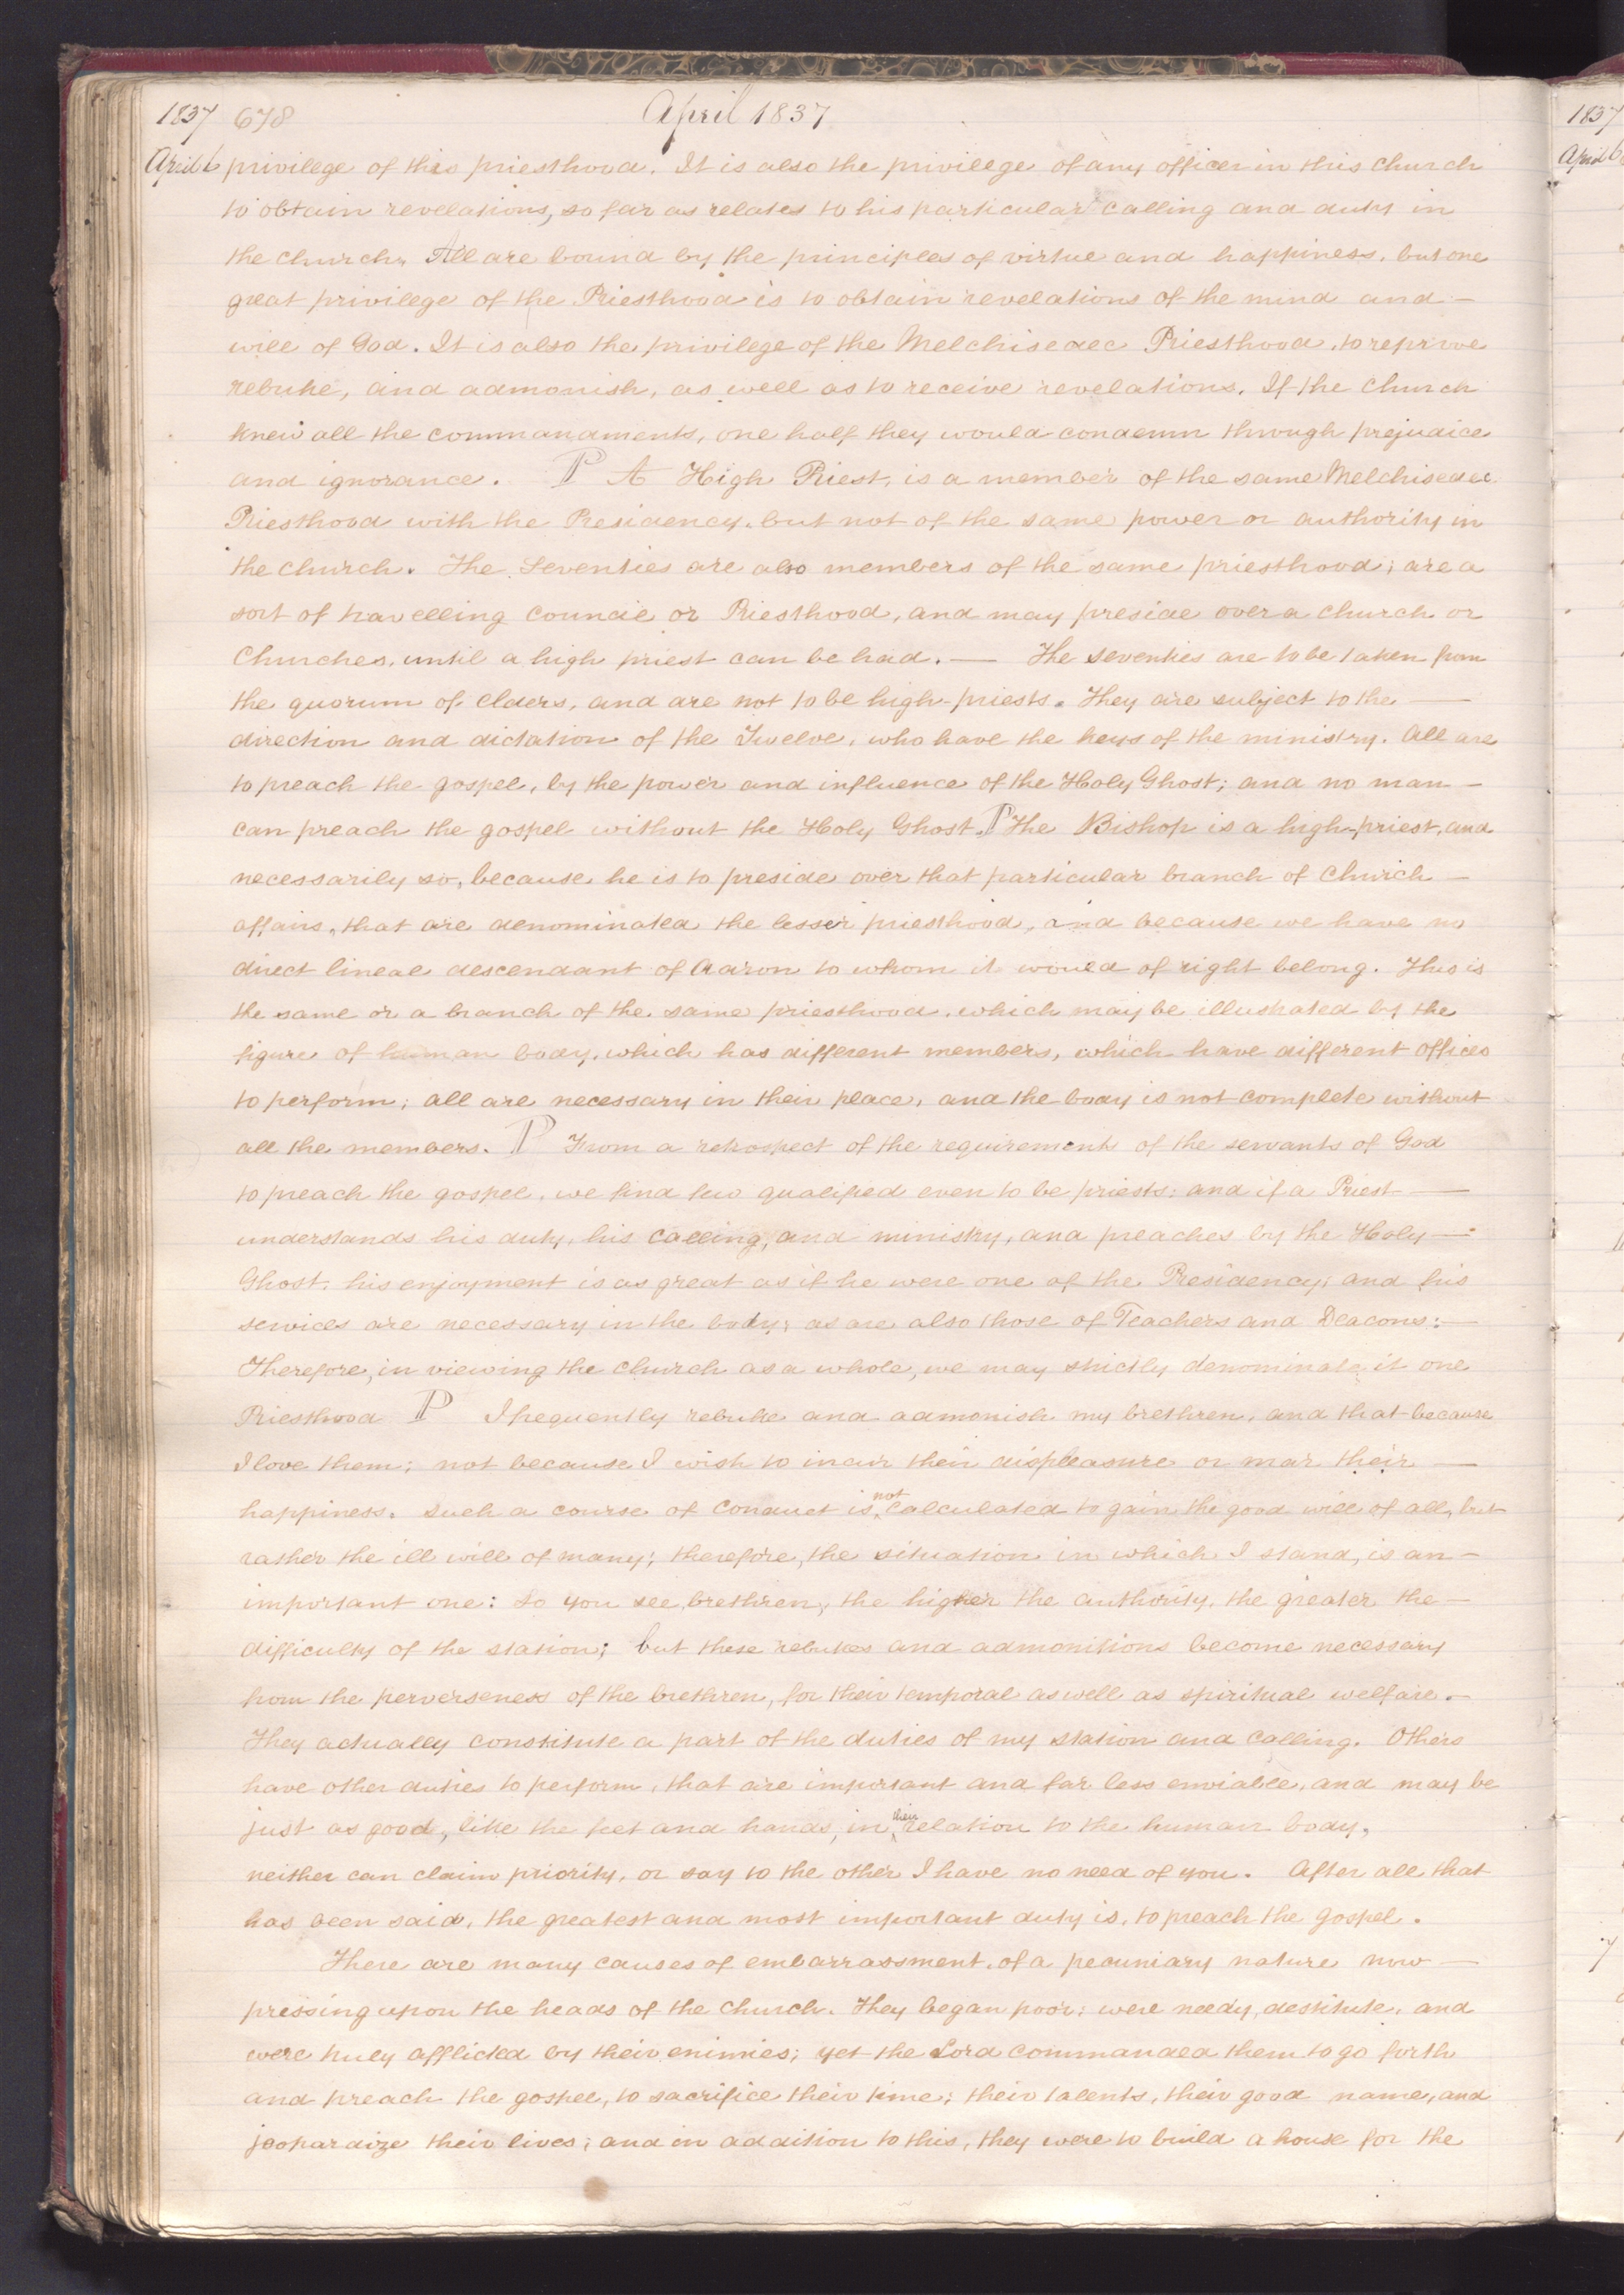 1837 678 April 1837
April 6 privilege of this priesthood. It is also the privilege of any officer in this church
to obtain revelations, so far as relates to his particular calling and duty in
the church. All are bound by the principles of virtue and happiness, but one
great privilege of the Priesthood is to obtain revelations of the mind and —
will of God. It is also the privilege of the Melchisedec Priesthood, to reprove
rebuke, and admonish, as well as to receive revelations. If the church
knew all the commandments, one half they would condemn through prejudice
and ignorance. P A High Priest, is a member of the same Melchisedec
Priesthood with the Presidency, but not of the same power or authority in
the church. The Seventies are also members of the same priesthood; are a
sort of travelling council or Priesthood, and may preside over a church or
Churches, until a high priest can be had. — The seventies are to be taken from
the quorum of elders, and are not to be high-priests. They are subject to the —
direction and dictation of the Twelve, who have the keys of the ministry. All are
to preach the gospel, by the power and influence of the Holy Ghost; and no man —
can preach the gospel without the Holy Ghost. P The Bishop is a high-priest, and
necessarily so, because he is to preside over that particular branch of Church —
affairs, that are denominated the lesser priesthood, and because we have no
direct lineal descendant of Aaron to whom it would of right belong. This is
the same or a branch of the same priesthood, which may be illustrated by the
figure of human body, which has different members, which have different offices
to perform; all are necessary in their place, and the body is not complete without
all the members. P From a retrospect of the requirements of the servants of God
to preach the gospel, we find few qualified even to be priests; and if a Priest —
understands his duty, his calling, and ministry, and preaches by the Holy —
Ghost, his enjoyment is as great as if he were one of the Presidency; and his
services are necessary in the body; as are also those of Teachers and Deacons: —
Therefore, in viewing the church as a whole, we may strictly denominate it one
Priesthood P I frequently rebuke and admonish my brethren, and that because
I love them; not because I wish to incur their displeasure or mar their —
happiness. Such a course of conduct is not calculated to gain the good will of all, but
rather the ill will of many; therefore, the situation in which I stand, is an —
important one: So you see, brethren, the higher the authority, the greater the —
difficulty of the station; but these rebukes and admonitions become necessary
from the perverseness of the brethren, for their temporal as well as spiritual welfare. —
They actually constitute a part of the duties of my station and calling. Others
have other duties to perform, that are important and far less enviable, and may be
just as good, like the feet and hands, in their relation to the human body,
neither can claim priority, or say to the other I have no need of you. After all that
has been said, the greatest and most important duty is, to preach the gospel.
There are many causes of embarrassment, of a pecuniary nature now —
pressing upon the heads of the church. They began poor; were needy, destitute, and
were truly afflicted by their enimies; yet the Lord commanded them to go forth
and preach the gospel, to sacrifice their time; their talents, their good name, and
jeopardize their lives; and in addition to this, they were to build a house for the
1837
April 6